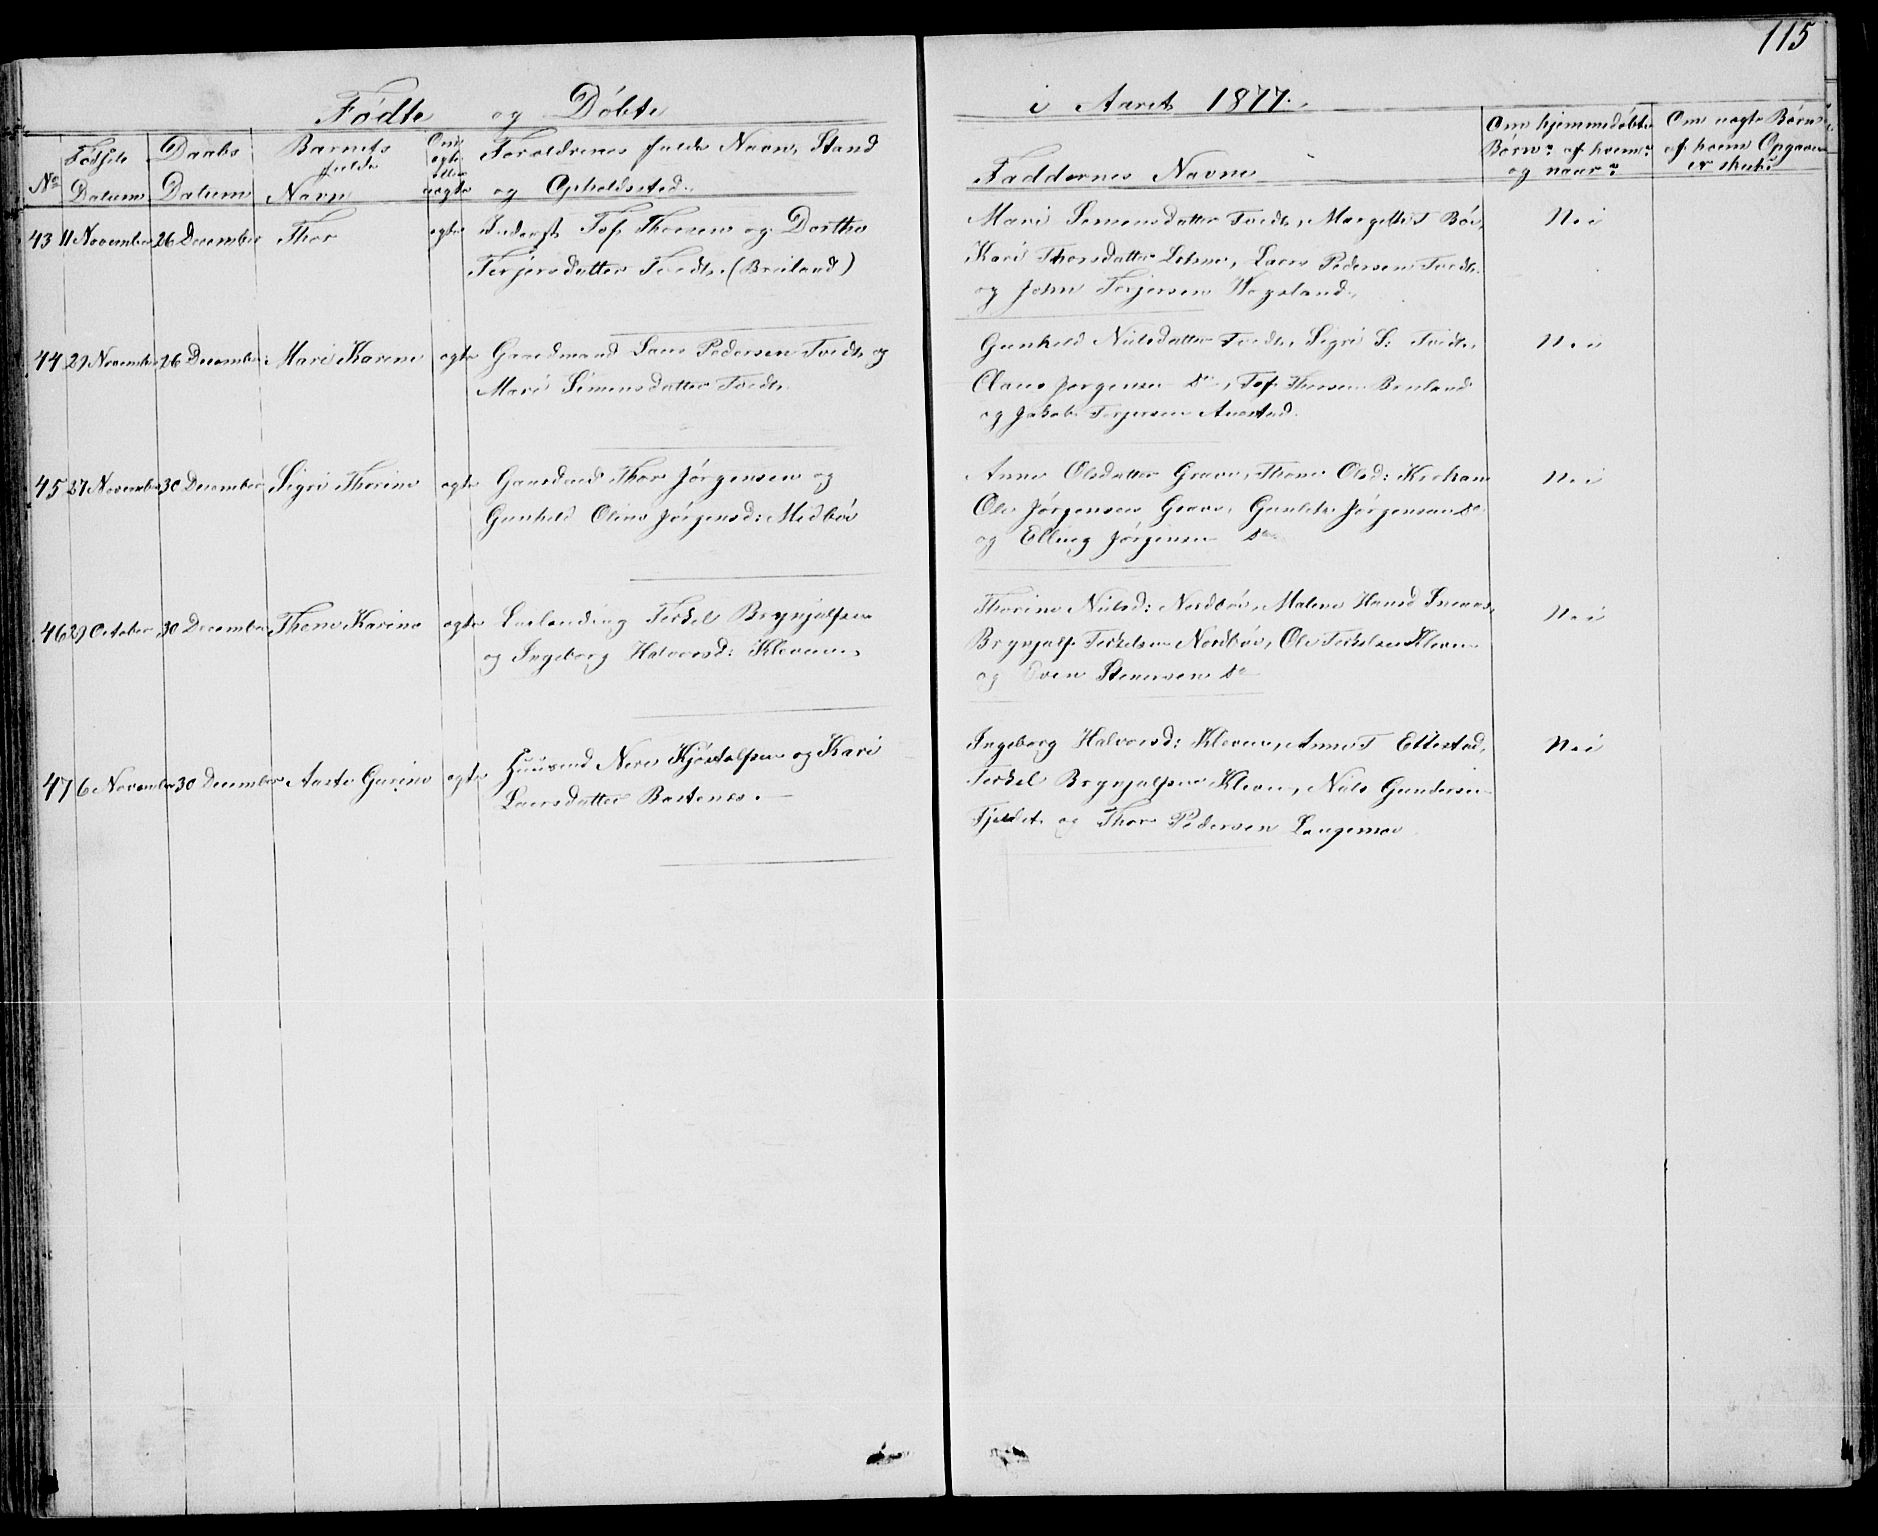 115
Fødte og Døbte i Aaret 1877.
No
Fødsels Datum
Daabs Datum
Barnets fulde Navn
Om ægte eller uægte
Forældrenes fulde Navn, Stand
og Opholdssted.
Faddernes Navne
Om hjemmedøbte
Børn: af hvem:
og naar:
Om uægte Børn
af hvem Opgaven
er skeet:
43 11 November 26 December Thor ægte
Inderst Tof Thorsen og Dorthe
Terjersdatter Tvedt. (Breiland)
Mari Simensdatter Tvedt, Margethe T Bøe,
Kari Thorsdatter, Lars Pedersen Tvedt
og John Terjersen Hegeland.
Nei
44 29 November 26 December Mari Karine ægte
Gaardmand Lars Pedersen Tvedt og
Mari Simensdatter Tvedt.
Gunhild Nielsdatter Tvedt, Sigri S: Tvedt,
Olaus Jørgensen Do, Tof Thorsen Breiland
og Jakob Terjersen Auestad.
Nei
45 27 November 30 December Sigri Thorine ægte
Gaardmd Thor Jørgensen og
Gunhild Oline Jørgensd: Midbøe
Anne Olsdatter Grave, Thone Olsd:
Ole Jørgensen Grave, Jørgensen Do
og Elling Jørgensen Do
Nei
46 29 October 30 December Thone Karine ægte
Leilending Terkel Brynjulfsen
og Ingeborg Halvorsd: Kleven.
Thorine Nielsd: Nordbøe, Malene Hansd
Brynjulf Terkelsen Nordbøe, Ole Terkelsen Kleven
og Even Stenersen Do
Nei
47 6 November 30 December Aaste Gurine ægte
Huusmd Neri Kjøstolfsen og Kari
Larsdatter Bastenes.
Ingeborg Halvorsd: Kleven, Anne T Ettestad,
Terkel Brynjulfsen Kleven, Niels Gundersen
og Thor Pedersen Langemoe
Nei